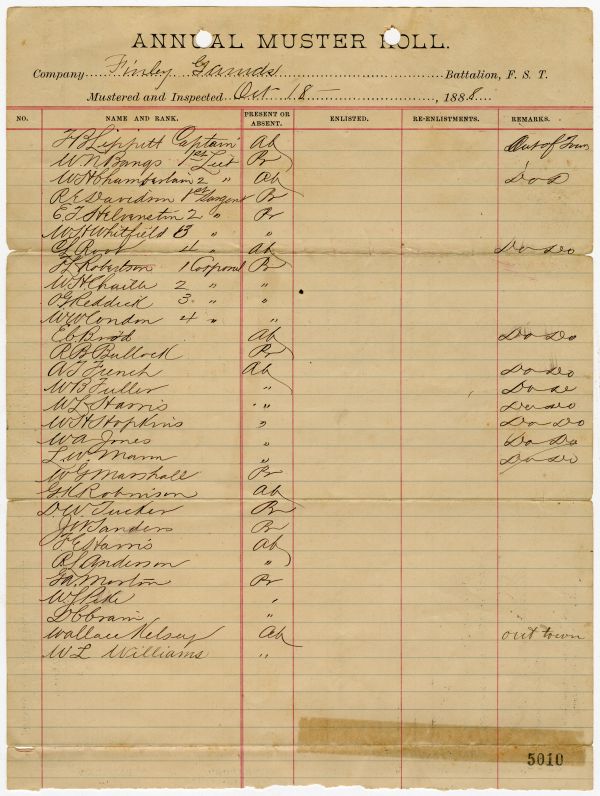 ANNUAL MUSTER ROLL.
Company Finley Battalion, F. S. T.
Mustered and Inspected Oct 18 — , 1888.
NO. NAME AND RANK. PRESENT OR ABSENT. ENLISTED. RE-ENLISTMENTS. REMARKS.
F B Lippitt Captain Ab Out of Town
W N Bangs 1st Lieut Pr
W H Chamberlain 2 " Ab Do D
R E Davidson 1st Sargent Pr
E T Helvenston 2 " Pr
W H Whitfield 3 " "
Root 4 " Ab Do Do
F L Robertson 1 Corporal Pr
W H Chaille 2 " "
O G Reddick 3 " "
W W Condon 4 " "
E C Ab Do Do
R B Bullock Pr
A T French Ab Do Do
W B Fuller " Do
W L Harris " Do Do
W H Hopkins " Do Do
W A Jones " Do Do
L W Mann " Do Do
W G Marshall Pr
G K Robinson Ab
D W Tucker Pr
J W Sanders Pr
T E Harris Ab
R L Anderson "
Ga. Morton Pr
W J Pike "
D C Crain "
Wallace Kelsey Ab out town
W L Williams "
5010